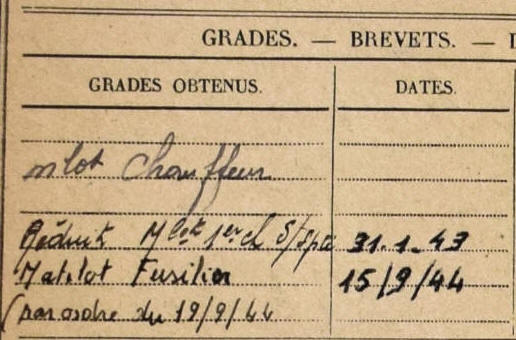 GRADES. — BREVETS. —
GRADES OBTENUS. DATES.
mlot Chauffeur
Réduit Mlot 1er cl S/spé 31.1.43
Matelot Fusilier 15/9/44
(par ordre du 19/9/44